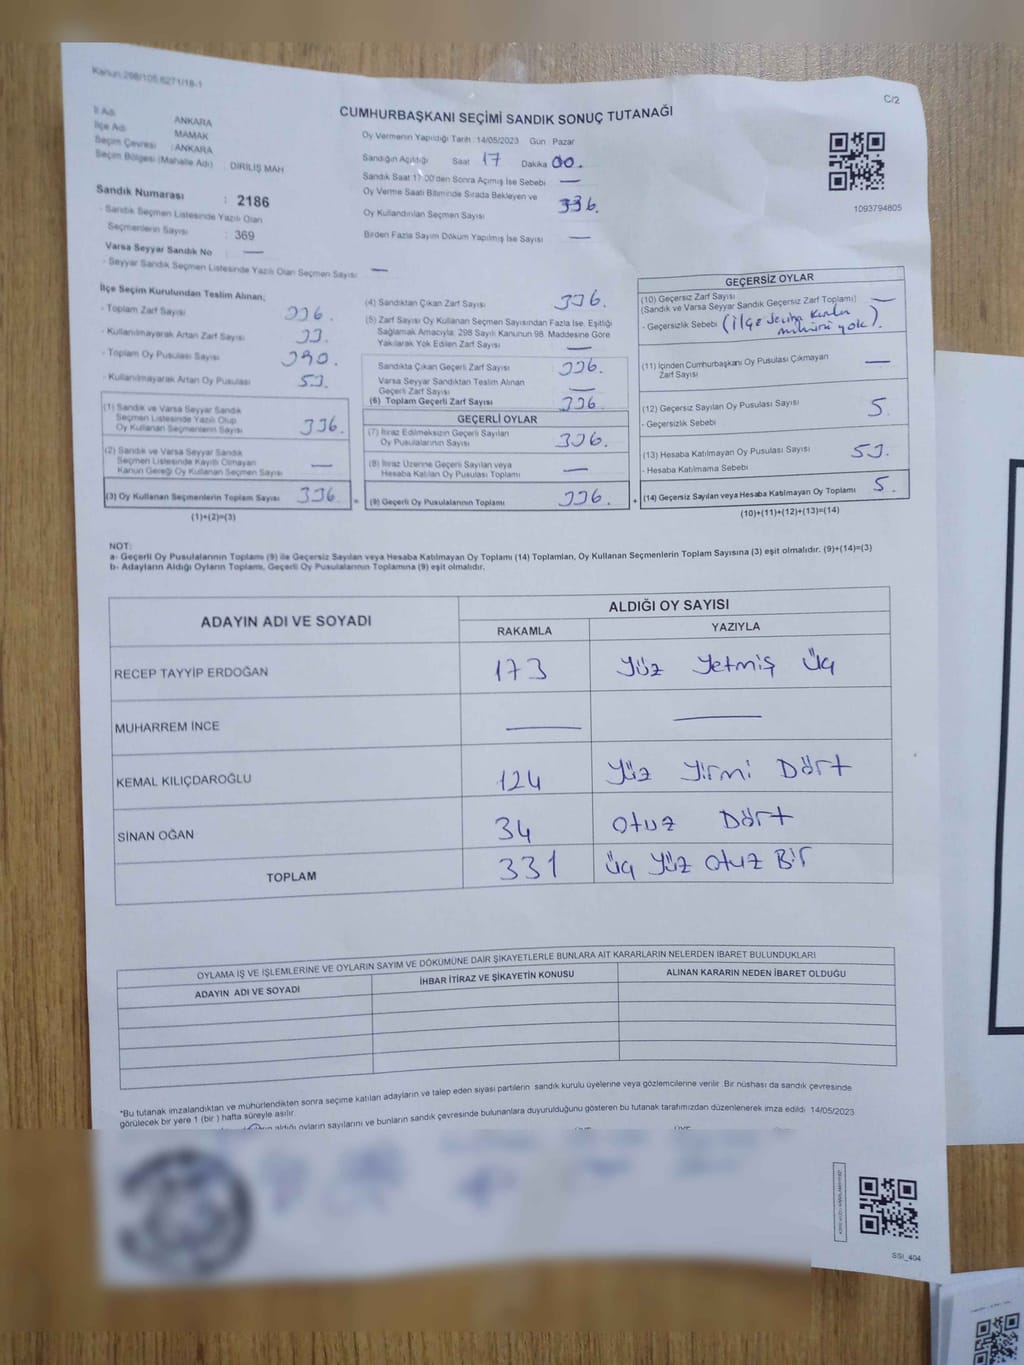 Kanun:298/105.6271/18-1
C/2
CUMHURBAŞKANI SEÇİMİ SANDIK SONUÇ TUTANAĞI
İl Adı ANKARA
İlçe Adı MAMAK
Seçim Çevresi : ANKARA
Seçim Bölgesi (Mahalle Adı) : DİRİLİŞ MAH
Sandık Numarası : 2186
- Sandık Seçmen Listesinde Yazılı Olan
Seçmenlerin Sayısı : 369
Varsa Seyyar Sandık No —
- Seyyar Sandık Seçmen Listesinde Yazılı Olan Seçmen Sayısı: —
Oy Vermenin Yapıldığı Tarih :14/05/2023 Gün Pazar
Sandığın Açıldığı Saat 17 Dakika 00.
Sandık Saat 17:00'den Sonra Açılmış İse Sebebi —
Oy Verme Saati Bitiminde Sırada Bekleyen ve
Oy Kullandırılan Seçmen Sayısı 336.
Birden Fazla Sayım Döküm Yapılmış İse Sayısı —
1093794805
İlçe Seçim Kurulundan Teslim Alınan;
- Toplam Zarf Sayısı 336.
- Kullanılmayarak Artan Zarf Sayısı 33.
- Toplam Oy Pusulası Sayısı 390.
- Kullanılmayarak Artan Oy Pusulası 53.
(1) Sandık ve Varsa Seyyar Sandık
Seçmen Listesinde Yazılı Olup
Oy Kullanan Seçmenlerin Sayısı 336.
(2) Sandık ve Varsa Seyyar Sandık
Seçmen Listesinde Kayıtlı Olmayan
Kanun Gereği Oy Kullanan Seçmen Sayısı —
(3) Oy Kullanan Seçmenlerin Toplam Sayısı 336.
(1)+(2)=(3)
(4) Sandıktan Çıkan Zarf Sayısı 336.
(5) Zarf Sayısı Oy Kullanan Seçmen Sayısından Fazla İse, Eşitliği
Sağlamak Amacıyla, 298 Sayılı Kanunun 98. Maddesine Göre
Yakılarak Yok Edilen Zarf Sayısı —
Sandıkta Çıkan Geçerli Zarf Sayısı 336.
Varsa Seyyar Sandıktan Teslim Alınan
Geçerli Zarf Sayısı —
(6) Toplam Geçerli Zarf Sayısı 336
GEÇERLİ OYLAR
(7) İtiraz Edilmeksizin Geçerli Sayılan
Oy Pusulalarının Sayısı 336.
(8) İtiraz Üzerine Geçerli Sayılan veya
Hesaba Katılan Oy Pusulası Toplamı —
(9) Geçerli Oy Pusulalarının Toplamı 336.
GEÇERSİZ OYLAR
(10) Geçersiz Zarf Sayısı —
(Sandık ve Varsa Seyyar Sandık Geçersiz Zarf Toplamı)
- Geçersizlik Sebebi (İlçe Seçim Kurulu
mühürü yok).
(11) İçinden Cumhurbaşkanı Oy Pusulası Çıkmayan
Zarf Sayısı —
(12) Geçersiz Sayılan Oy Pusulası Sayısı 5.
- Geçersizlik Sebebi
(13) Hesaba Katılmayan Oy Pusulası Sayısı 53.
- Hesaba Katılmama Sebebi
(14) Geçersiz Sayılan veya Hesaba Katılmayan Oy Toplamı 5.
(10)+(11)+(12)+(13)=(14)
NOT:
a- Geçerli Oy Pusulalarının Toplamı (9) ile Geçersiz Sayılan veya Hesaba Katılmayan Oy Toplamı (14) Toplamları, Oy Kullanan Seçmenlerin Toplam Sayısına (3) eşit olmalıdır. (9)+(14)=(3)
b- Adayların Aldığı Oyların Toplamı, Geçerli Oy Pusulalarının Toplamına (9) eşit olmalıdır.
ADAYIN ADI VE SOYADI ALDIĞI OY SAYISI
RAKAMLA YAZIYLA
RECEP TAYYİP ERDOĞAN 173 Yüz Yetmiş Üç
MUHARREM İNCE — —
KEMAL KILIÇDAROĞLU 124 Yüz Yirmi Dört
SİNAN OĞAN 34 Otuz Dört
TOPLAM 331 Üç Yüz Otuz Bir
OYLAMA İŞ VE İŞLEMLERİNE VE OYLARIN SAYIM VE DÖKÜMÜNE DAİR ŞİKAYETLERLE BUNLARA AİT KARARLARIN NELERDEN İBARET BULUNDUKLARI
ADAYIN ADI VE SOYADI İHBAR İTİRAZ VE ŞİKAYETİN KONUSU ALINAN KARARIN NEDEN İBARET OLDUĞU
*Bu tutanak imzalandıktan ve mühürlendikten sonra seçime katılan adayların ve talep eden siyasi partilerin sandık kurulu üyelerine veya gözlemcilerine verilir. Bir nüshası da sandık çevresinde
görülecek bir yere 1 (bir ) hafta süreyle asılır.
aldığı oyların sayılarını ve bunların sandık çevresinde bulunanlara duyurulduğunu gösteren bu tutanak tarafımızdan düzenlenerek imza edildi. 14/05/2023
SSI_404